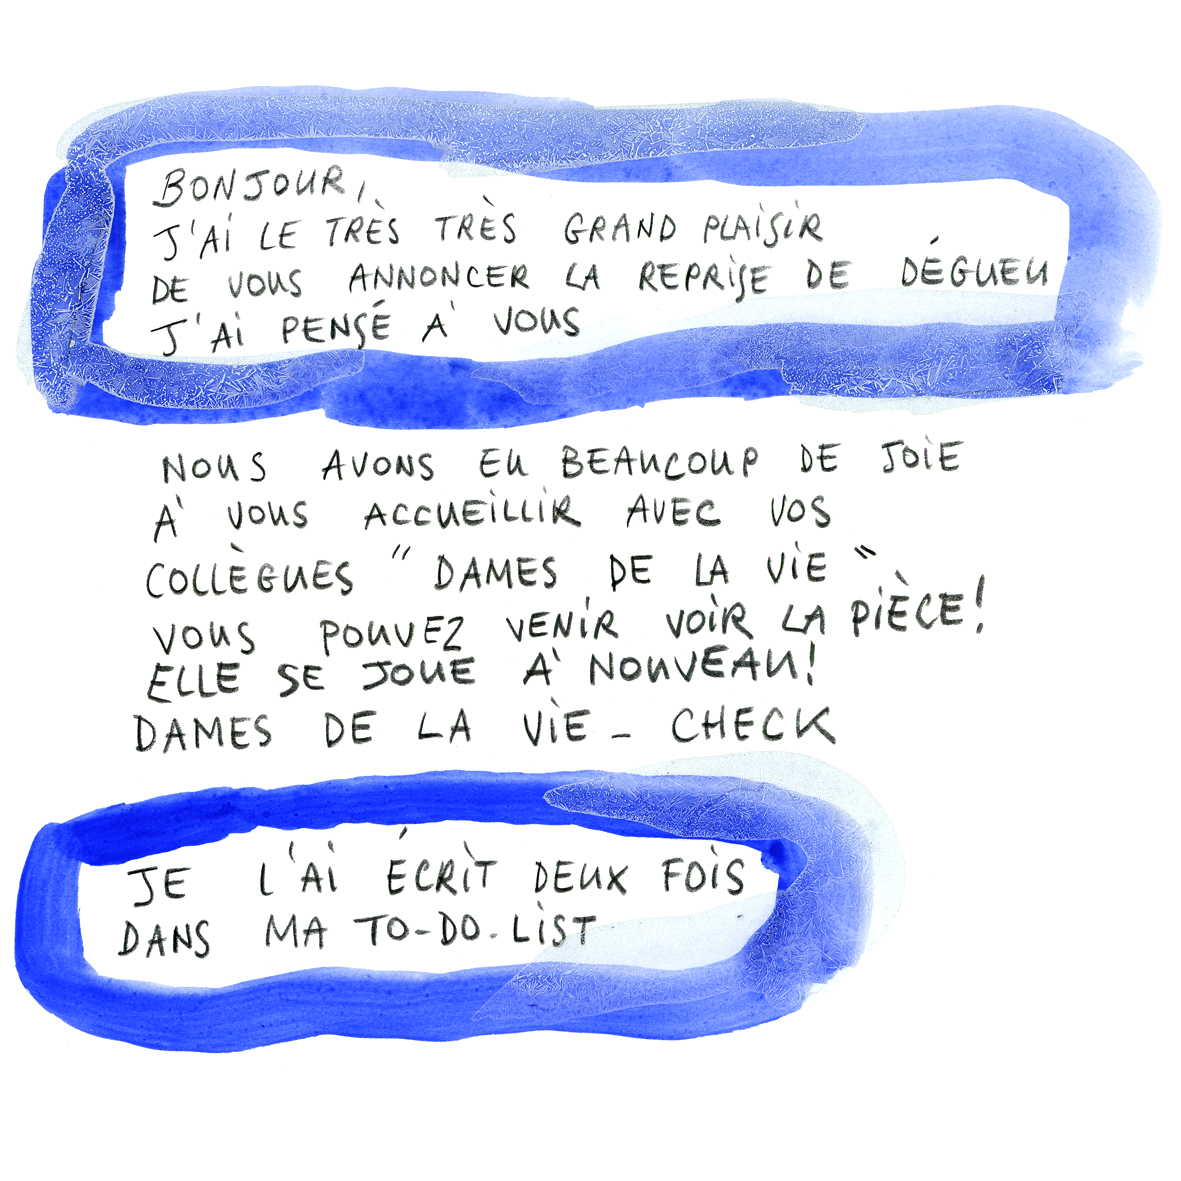 BONJOUR,
J'AI LE TRÈS TRÈS GRAND PLAISIR
DE VOUS ANNONCER LA REPRISE DE DÉGUEU
J'AI PENSÉ À VOUS
NOUS AVONS EU BEAUCOUP DE JOIE
À VOUS ACCUEILLIR AVEC VOS
COLLÈGUES "DAMES DE LA VIE"
VOUS POUVEZ VENIR VOIR LA PIÈCE!
ELLE SE JOUE À NOUVEAU!
DAMES DE LA VIE - CHECK
JE L'AI ÉCRIT DEUX FOIS
DANS MA TO-DO-LIST